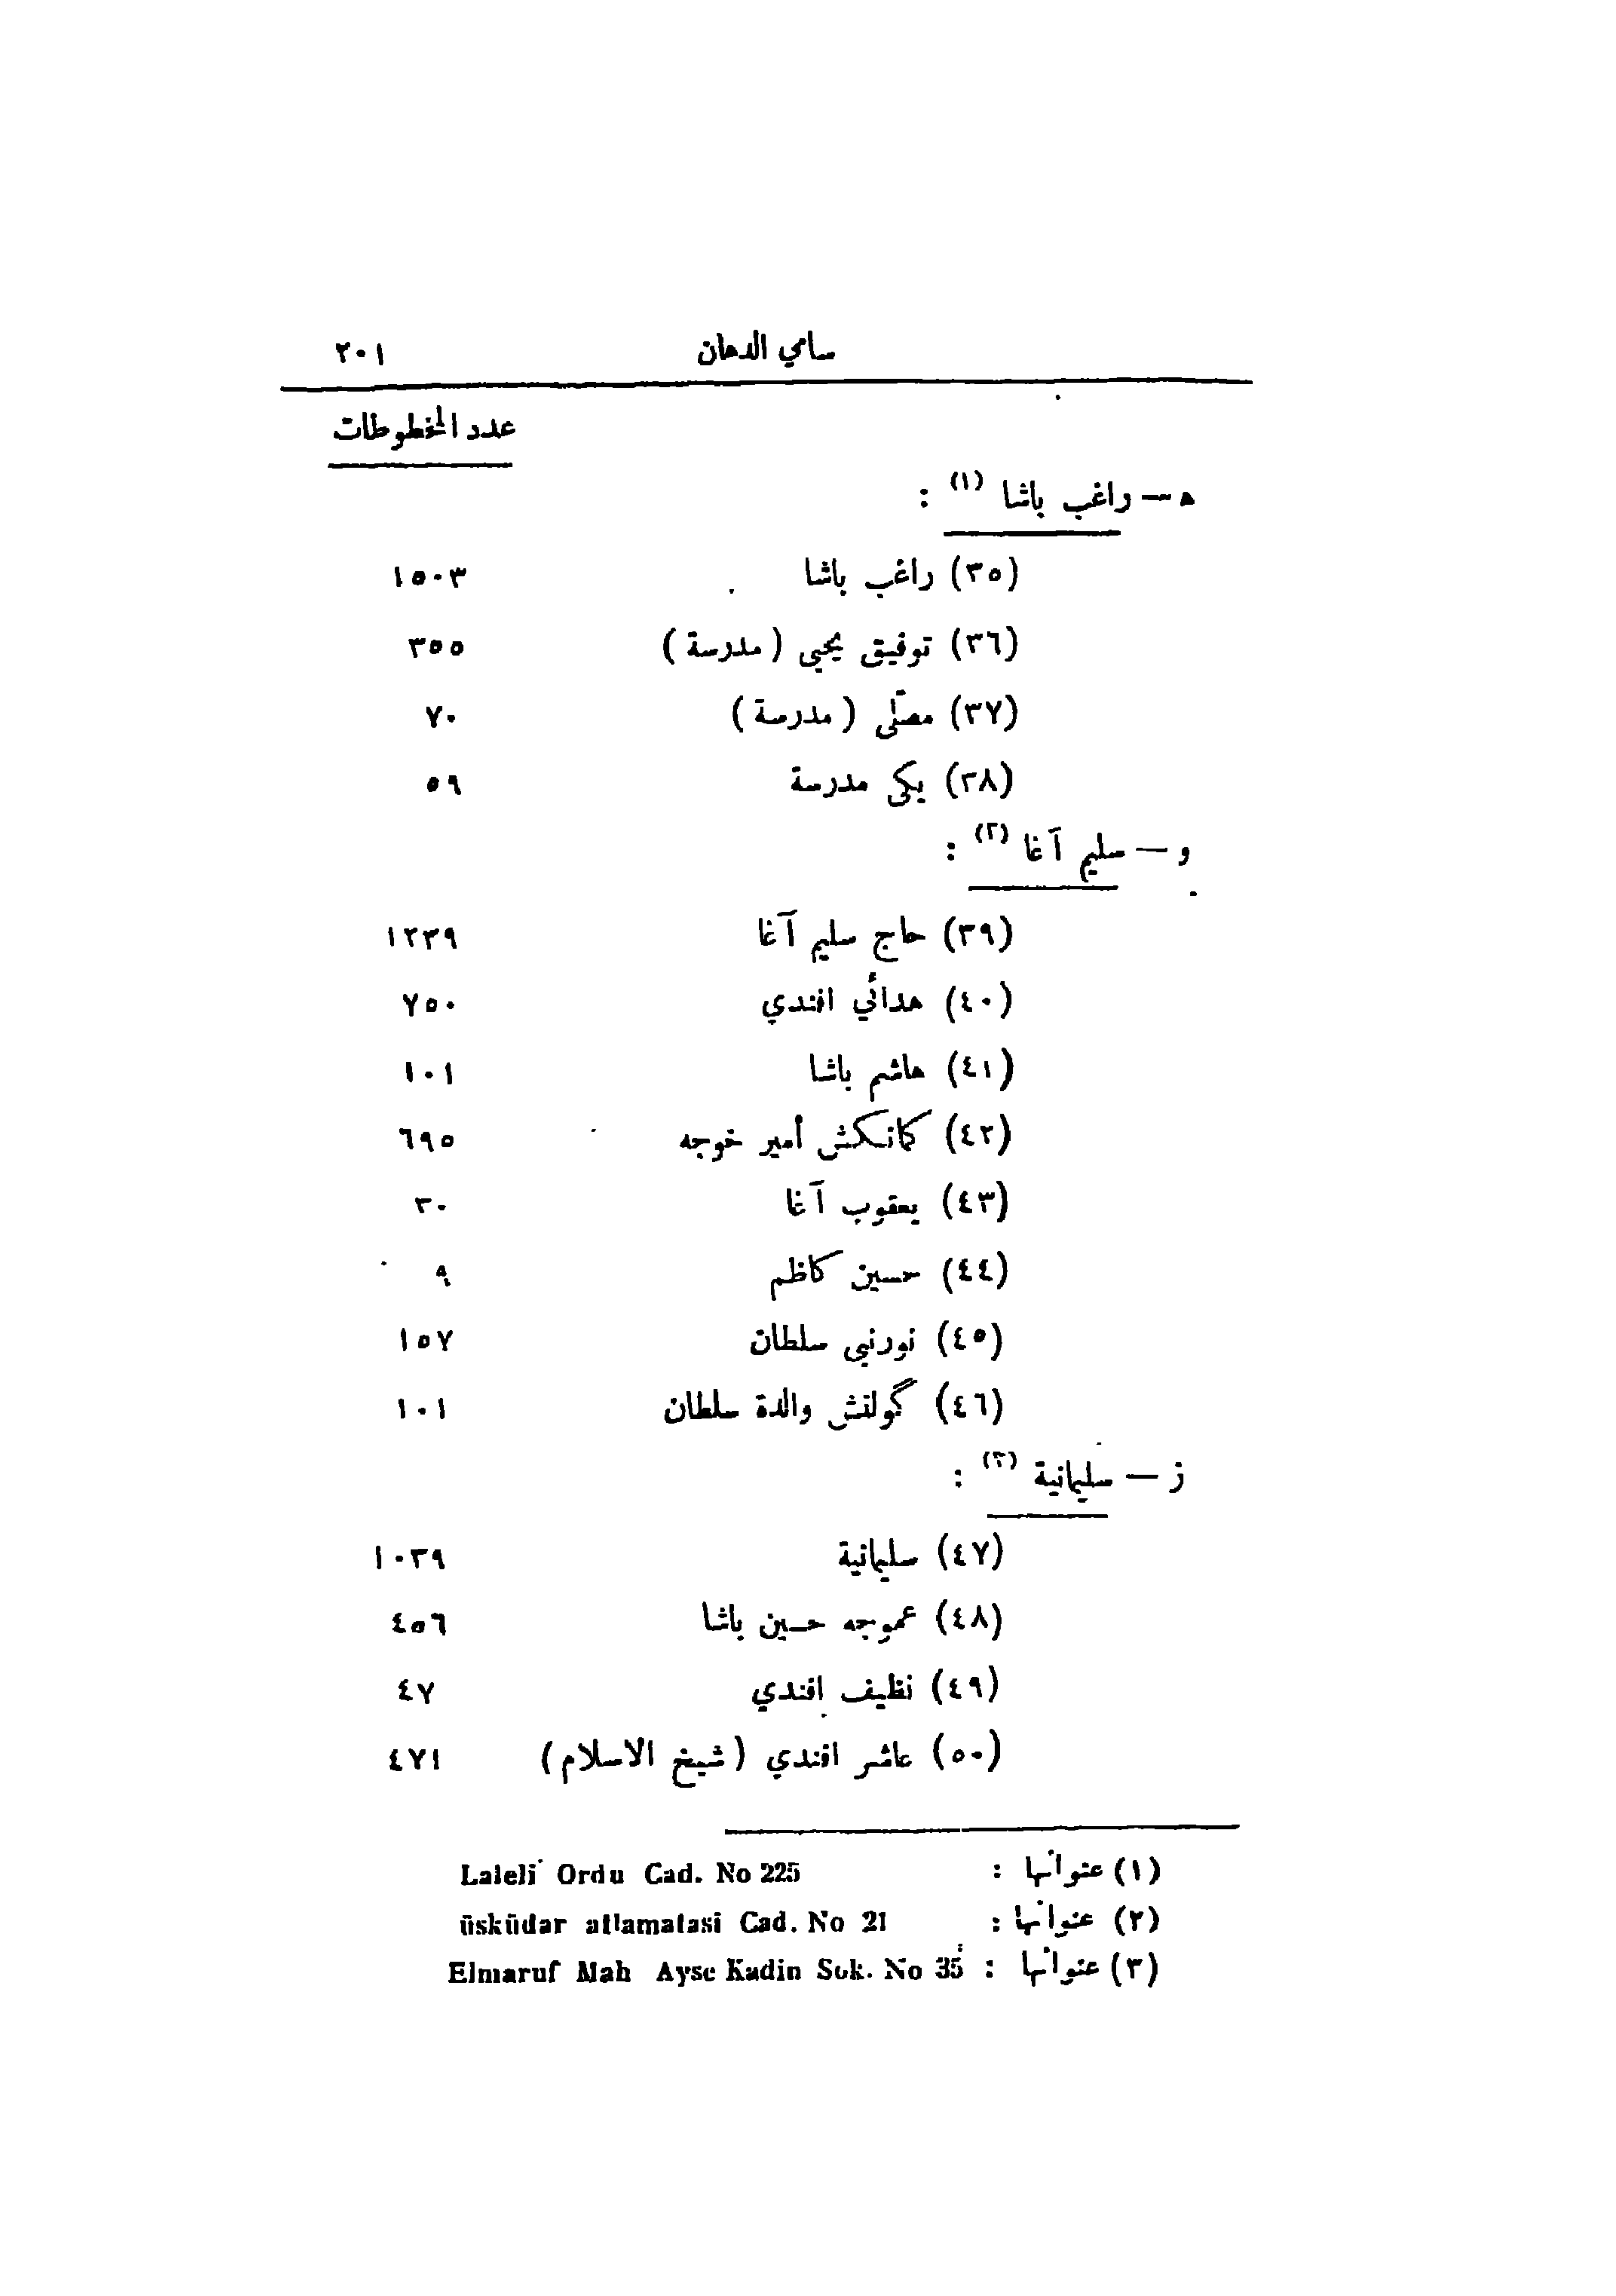 سامي الدهان ٢٠١
عدد المخطوطات
ه — راغب باشا (١) :
(٣٥) راغب باشا ١٥٠٣
(٣٦) توفيق يحيى (مدرسة) ٣٥٥
(٣٧) مصلّى (مدرسة) ٧٠
(٣٨) يكى مدرسة ٥٩
و — سليم آغا (٢) :
(٣٩) حاج سليم آغا ١٢٣٩
(٤٠) هدائي افندي ٧٥٠
(٤١) هاشم باشا ١٠١
(٤٢) كمانكش أمير خوجه ٦٩٥
(٤٣) يعقوب آغا ٣٠
(٤٤) حسين كاظم ٩
(٤٥) نوربنى سلطان ١٥٧
(٤٦) گولنش والدة سلطان ١٠١
ز — سليمانية (٣) :
(٤٧) سليمانية ١٠٣٩
(٤٨) عموجه حسين باشا ٤٥٦
(٤٩) نظيف افندي ٤٧
(٥٠) عاشر افندي (شيخ الاسلام) ٤٧١
(١) عنوانها : Laleli Ordu Cad. No 225
(٢) عنوانها : üsküdar atlamatasi Cad. No 21
(٣) عنوانها : Elmaruf Mah Ayse Kadin Sok. No 35